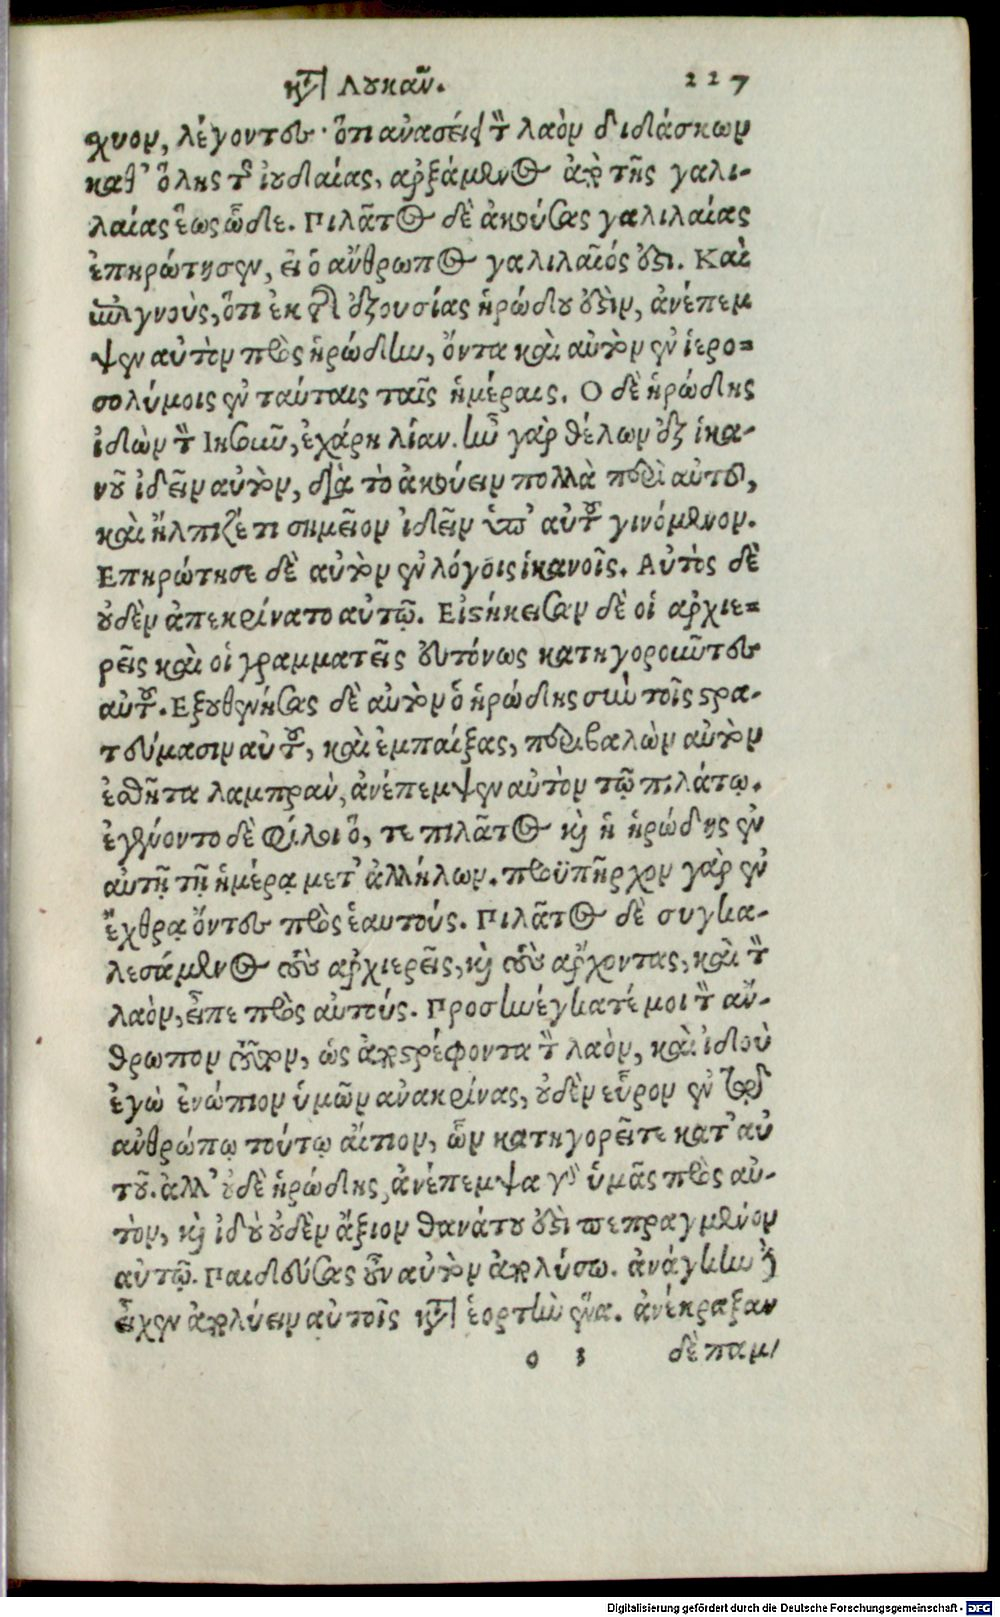 κτ Λουκᾶν. 227
χυον, λέγοντες· ὅτι ἀνασείει τὸν λαὸν διδάσκων
καθ' ὅλης τῆς ἰουδαίας, ἀρξάμενος ἀπὸ τῆς γαλι-
λαίας ἕως ὧδε. Πιλᾶτος δὲ ἀκούσας γαλιλαίας
ἐπηρώτησεν, εἰ ὁ ἄνθρωπος γαλιλαῖός ἐστι. Καὶ
ἐπιγνοὺς, ὅτι ἐκ τῆς ἐξουσίας ἡρώδου ἐστὶν, ἀνέπεμ
ψεν αὐτὸν πρὸς ἡρώδην, ὄντα καὶ αὐτὸν ἐν ἱερο=
σολύμοις ἐν ταύταις ταῖς ἡμέραις. Ο δὲ ἡρώδης
ἰδὼν τὸν Ιησοῦν, ἐχάρη λίαν. ἦν γὰρ θέλων ἐξ ἱκα-
νοῦ ἰδεῖν αὐτὸν, διὰ τὸ ἀκούειν πολλὰ περὶ αὐτοῦ,
καὶ ἤλπιζέ τι σημεῖον ἰδεῖν ὑπ' αὐτοῦ γινόμενον.
Επηρώτησε δὲ αὐτὸν ἐν λόγοις ἱκανοῖς. Αὐτὸς δὲ
οὐδὲν ἀπεκρίνατο αὐτῷ. Εἱστήκεισαν δὲ οἱ ἀρχιε=
ρεῖς καὶ οἱ γραμματεῖς εὐτόνως κατηγοροῦντες
αὐτοῦ. Εξουθενήσας δὲ αὐτὸν ὁ ἡρώδης σὺν τοῖς στρα-
τεύμασιν αὐτοῦ, καὶ ἐμπαίξας, περιβαλὼν αὐτὸν
ἐσθῆτα λαμπρὰν, ἀνέπεμψεν αὐτὸν τῷ πιλάτῳ.
ἐγένοντο δὲ φίλοι ὅ, τε πιλᾶτος καὶ ἡ ἡρώδης ἐν
αὐτῇ τῇ ἡμέρᾳ μετ' ἀλλήλων. προϋπῆρχον γὰρ ἐν
ἔχθρᾳ ὄντες πρὸς ἑαυτούς. Πιλᾶτος δὲ συγκα-
λεσάμενος τοὺς ἀρχιερεῖς, καὶ τοὺς ἄρχοντας, καὶ τὸν
λαὸν, εἶπε πρὸς αὐτούς. Προσηνέγκατέ μοι τὸν ἄν-
θρωπον τοῦτον, ὡς ἀποστρέφοντα τὸν λαὸν, καὶ ἰδοὺ
ἐγὼ ἐνώπιον ὑμῶν ἀνακρίνας, οὐδὲν εὗρον ἐν τῷ
ἀνθρώπῳ τούτῳ αἴτιον, ὧν κατηγορεῖτε κατ' αὐ
τοῦ. ἀλλ' οὐδὲ ἡρώδης, ἀνέπεμψα γὰρ ὑμᾶς πρὸς αὐ-
τὸν, καὶ ἰδοὺ οὐδὲν ἄξιον θανάτου ἐστὶ πεπραγμένον
αὐτῷ. Παιδεύσας οὖν αὐτὸν ἀπολύσω. ἀνάγκην δὲ
εἶχεν ἀπολύειν αὐτοῖς κατὰ ἑορτὴν ἕνα. ἀνέκραξαν
ο 3 δὲ παμ